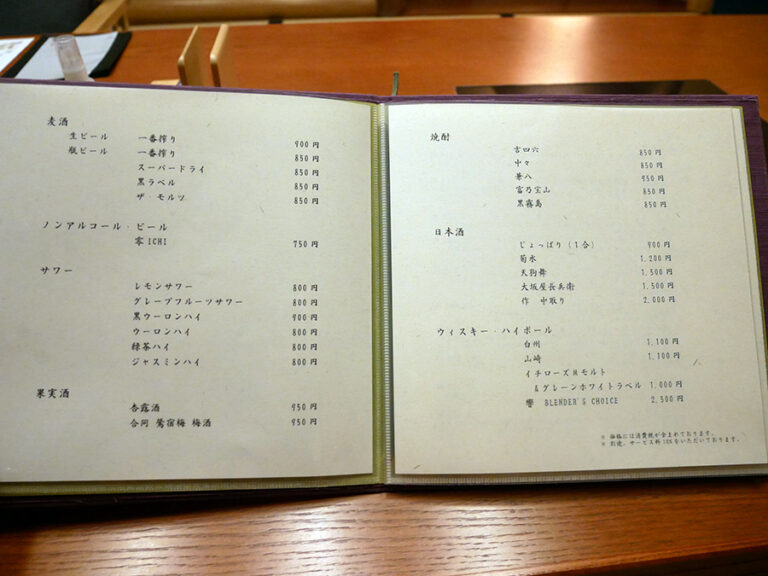 麦酒
生ビール 一番搾り 900円
瓶ビール 一番搾り 850円
スーパードライ 850円
黒ラベル 850円
ザ・モルツ 850円
ノンアルコール・ビール
零ICHI 750円
サワー
レモンサワー 800円
グレープフルーツサワー 800円
黒ウーロンハイ 900円
ウーロンハイ 800円
緑茶ハイ 800円
ジャスミンハイ 800円
果実酒
杏露酒 950円
鶯宿梅 梅酒 950円
焼酎
吉四六 850円
中々 850円
兼八 950円
富乃宝山 850円
黒霧島 850円
日本酒
じょっぱり(1合) 900円
菊水 1,200円
天狗舞 1,500円
大坂屋長兵衛 1,500円
作 中取り 2,000円
ウィスキー・ハイボール
白州 1,100円
山崎 1,100円
イチローズMモルト
&グレーンホワイトラベル 1,000円
響 BLENDER'S CHOICE 2,500円
※ 価格には消費税が含まれております。
※ 別途、サービス料10%をいただいております。